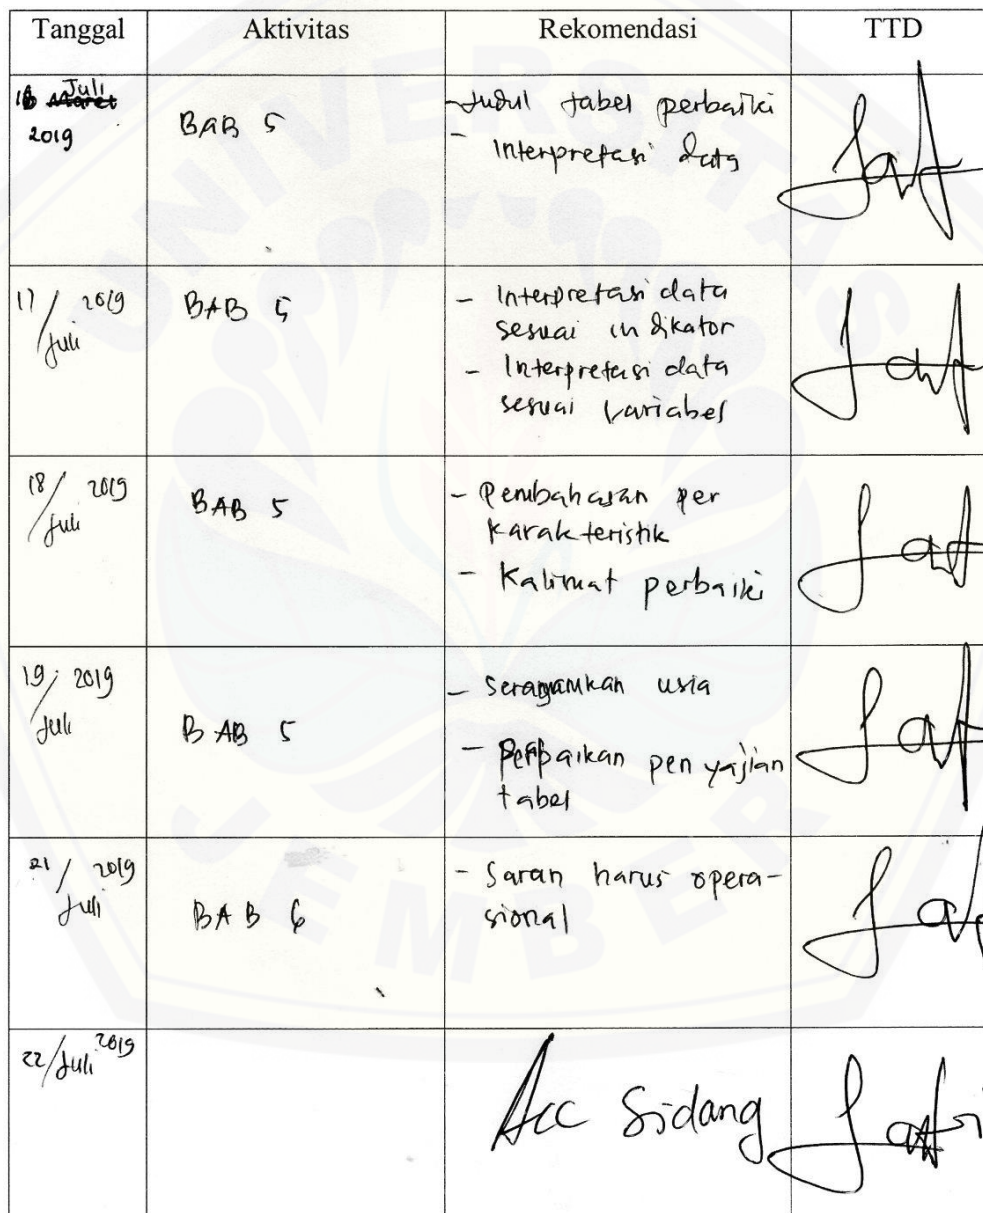 Tanggal Aktivitas Rekomendasi TTD
Juli
16 Maret
2019
BAB 5
- Judul tabel perbaiki
- Interpretasi data
17/Juli 2019
BAB 5
- Interpretasi data
sesuai indikator
- Interpretasi data
sesuai variabel
18/Juli 2019
BAB 5
- Pembahasan per
karakteristik
- Kalimat perbaiki
19/Juli 2019
BAB 5
- Seragamkan usia
- Perbaikan penyajian
tabel
21/Juli 2019
BAB 6
- Saran harus opera-
sional
22/Juli 2019
Acc Sidang
UNIVERSITAS
JEMBER